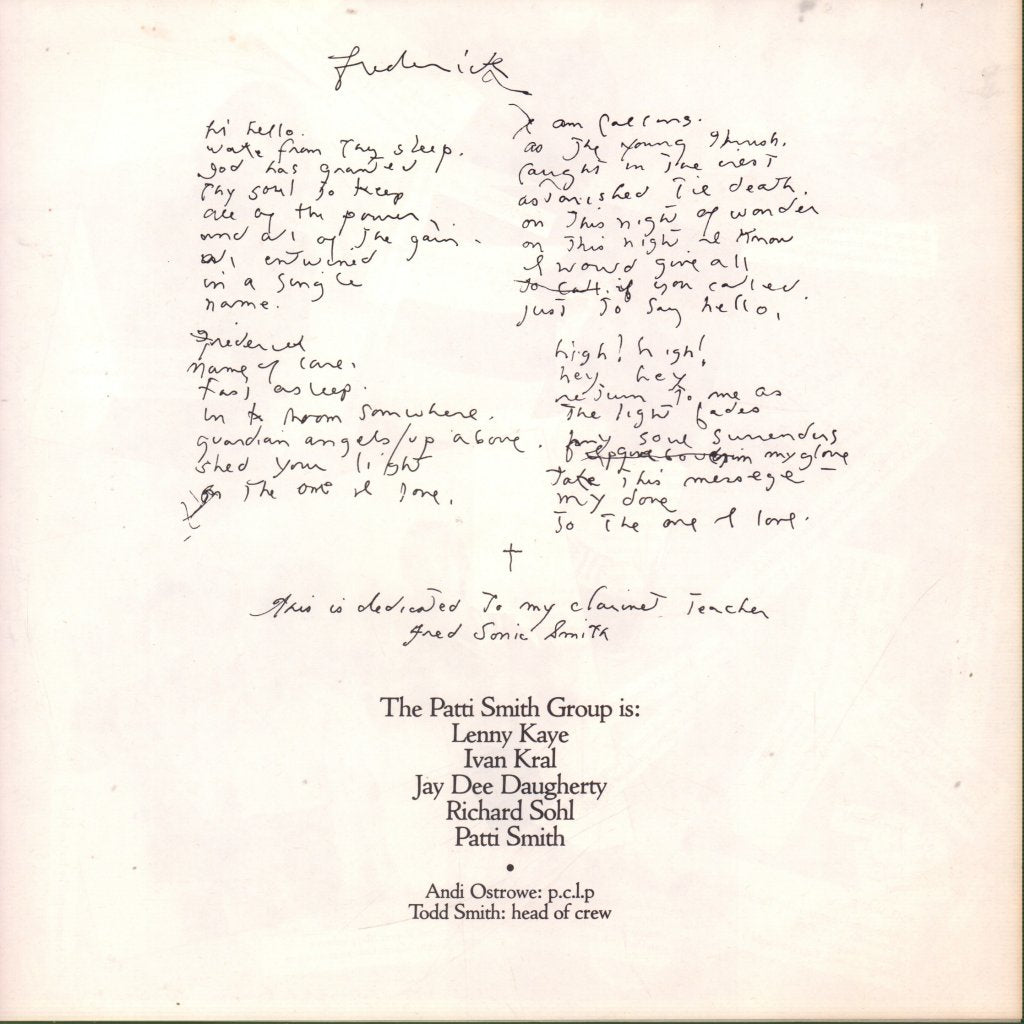 Frederick
hi hello.
wake from thy sleep.
god has granted
thy soul to keep
all of the power
and all of the gain.
all entwined
in a single
name.
Frederick
name of care.
fast asleep.
in a room somewhere.
guardian angels/up above.
shed your light
on the one I love.
I am
as the young thrush.
caught in the crest
astonished death.
on this night of wonder
on this night I know
I would give all
to call. if you called.
just to say hello.
high! high!
hey hey
return to me as
the light fades
my soul surrenders
my glove
take this message
my dove
to the one I love.
†
This is dedicated to my clarinet teacher
Fred Sonic Smith
The Patti Smith Group is:
Lenny Kaye
Ivan Kral
Jay Dee Daugherty
Richard Sohl
Patti Smith
•
Andi Ostrowe: p.c.l.p
Todd Smith: head of crew